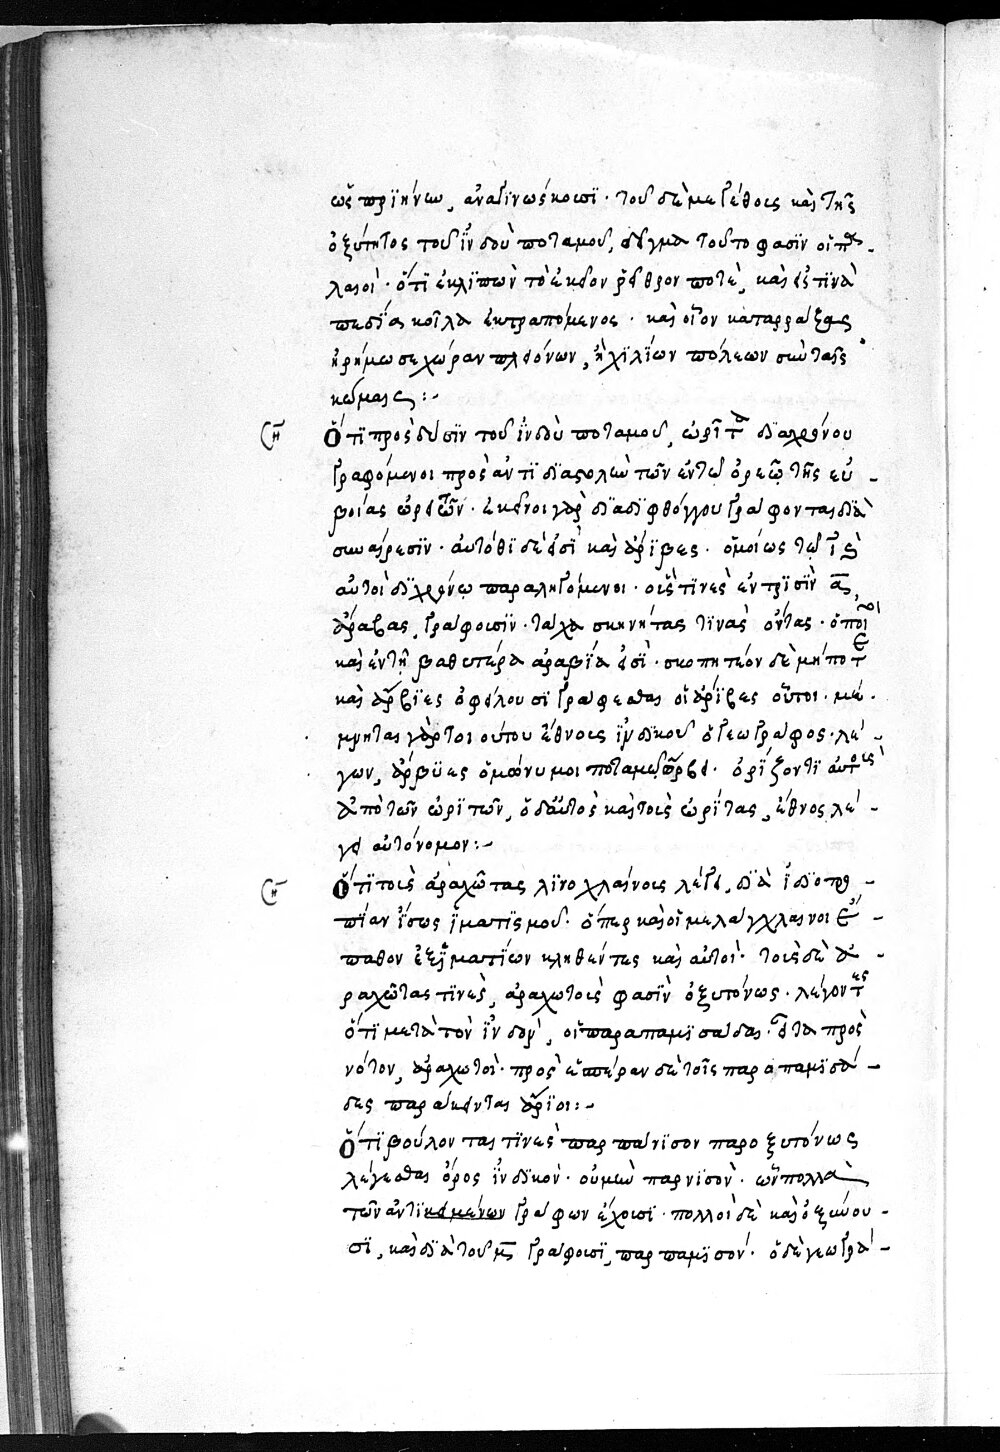 ὡς πρϊήνεω, ἀναγϊνώσκουσϊ· τοῦ δὲ μεγέθους καὶ τῆς
ὀξύτητος τοῦ ἰνδοῦ ποταμοῦ, δεῖγμα τοῦτο φασὶν οἱ πα-
λαιοὶ· ὅτϊ ἐκλϊπὼν τὸ ἐκεῖνον ῥεῖθρον ποτὲ, καὶ εἰς τϊνὰ
πεδία κοῖλα ἐκτραπόμενος· καὶ οἷον καταρράξας
ἠρήμωσε χώραν πλειόνων, ἢ χϊλϊων πόλεων σὺν ταῖς
κώμαις:-
Ὅτϊ πρὸς δύσϊν τοῦ ἰνδοῦ ποταμοῦ, ὠρῖται δϊαιρένου
γραφόμενοι πρὸς ἀντϊδϊαστολὴν τῶν ἐν τῶ ὄρει τῆς εὐ-
βοίας ὠρειτῶν· ἐκεῖνοι γὰρ δϊὰ δϊφθόγγου γράφονται δϊὰ
συναίρεσϊν· αὐτόθϊ δὲ εἰσὶ καὶ ἄρϊβες· ὁμοίως τῶ ῑ καὶ
αὐτοὶ δϊχρόνω παραληγόμενοι· οὕς τϊνες ἐν τρϊσὶν ᾱ,
ἄραβας, γράφουσϊν· τάχα σκηνήτας τϊνας ὄντας· ὁποῖοι
καὶ ἐν τῆ βαθυτέρα ἀραβία εἰσὶ· σκοπητέον δὲ μήποτε
καὶ ἄρβϊες ὀφείλουσϊ γράφεσθαι οἱ ἄρϊβες οὗτοι· μέ-
μνηται γάρ τοι οὕτου ἔθνους ἰνδϊκοῦ ὁ γεωγράφος· λέ-
γων, ἄρβϊες ὁμώνυμοι ποταμῶ ἄρβει· ὁρϊζοντϊ αὐτοὺς
ἀπὸ τῶν ὠρϊτῶν, ὁ δ᾽ αὐτὸς καὶ τοὺς ὠρίτας, ἔθνος λέ-
γει αὐτόνομον:-
Ὅτϊ τοὺς ἀραχώτας λϊνοχλαίνους λέγει, δϊὰ ἰδϊοτρο-
πίαν ἴσως ἱματϊσμοῦ· ὅπερ καὶ οἱ μελάγχλαινοι ἔ-
παθον ἐξ ἱματίων κληθέντες καὶ αὐτοὶ· τοὺς δὲ ἀ-
ραχώτας τϊνὲς, ἀραχωτοὺς φασὶν ὀξυτόνως· λέγοντες
ὅτϊ μετὰ τὸν ἰνδὸν, οἱ παραπαμϊσάδαι· εἶτα πρὸς
νότον, ἀραχωτοὶ· πρὸς ἑσπέραν δὲ τοῖς παραπαμϊσά-
δαις παράκεινται ἄρϊοι:-
Ὅτϊ βούλονται τϊνὲς παρπάνϊσον παροξυτόνως
λέγεσθαι ὄρος ἰνδϊκὸν· οὐ μὴν παρνϊσὸν· ὡς πολλὰ
τῶν ἀντϊκειμένων γράφων ἔχουσϊ· πολλοὶ δὲ καὶ ὀξύνου-
σϊ, καὶ δϊὰ τοῦ μ̄ γράφουσϊ, παρπαμϊσὸν· ὁ δὲ γεωγρά-